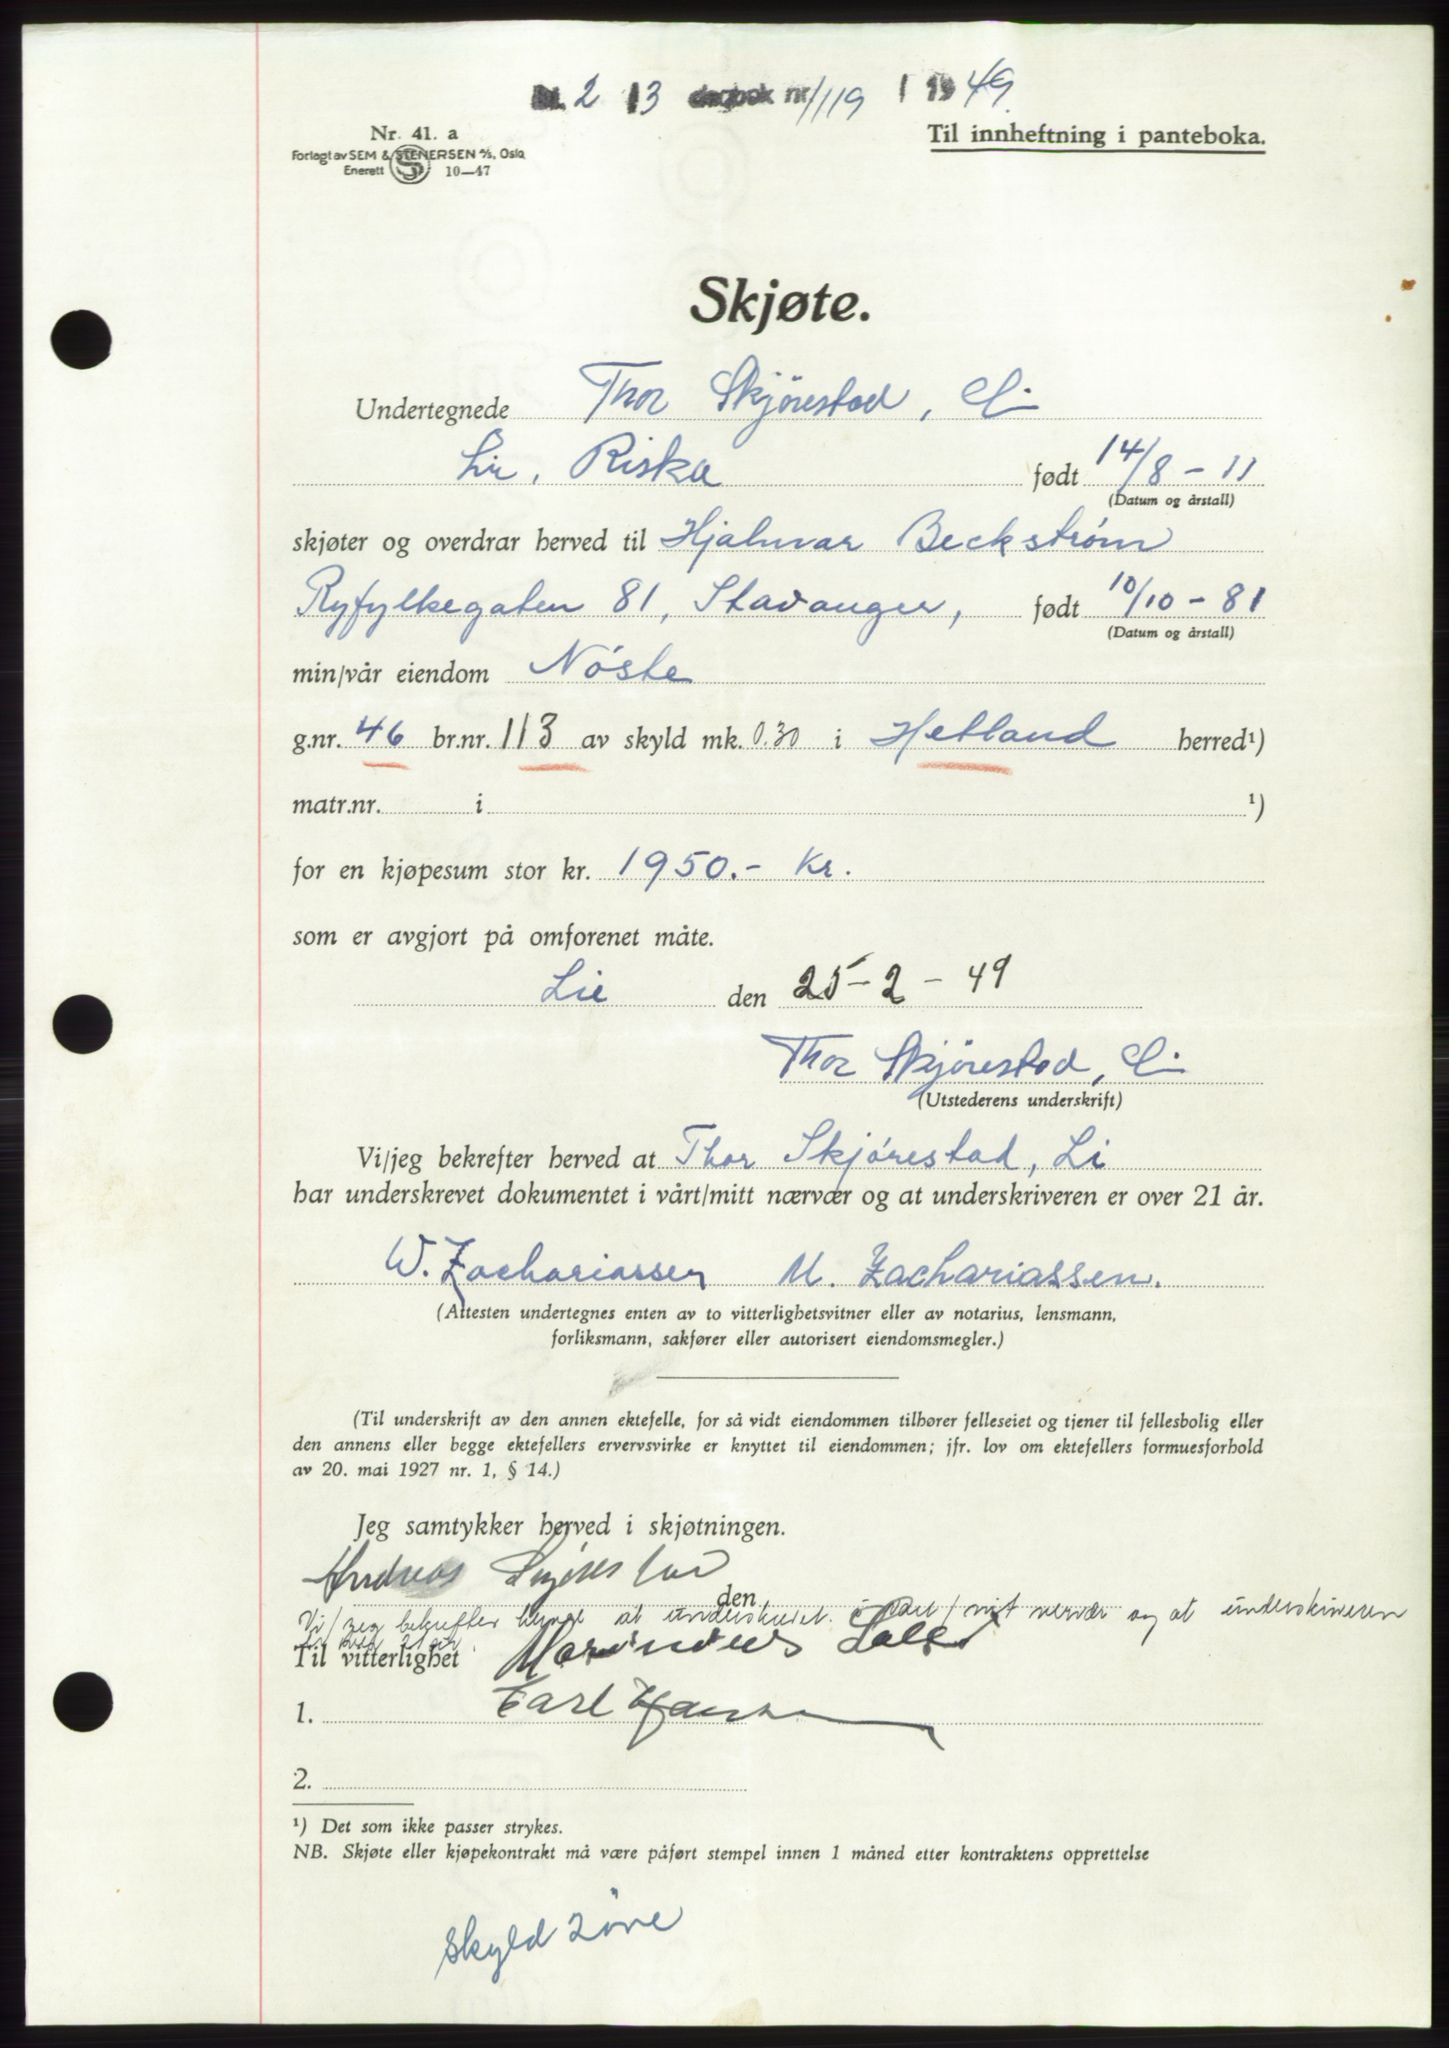 2 / 3 dagbok nr. 1119 19 49
Nr. 41. a
Forlagt av SEM & STENERSEN A/S, Oslo
Enerett 10—47
Til innheftning i panteboka.
Skjøte.
Undertegnede Thor Skjørestad, Li
Li, Riska født 14/8 - 11
(Datum og årstall)
skjøter og overdrar herved til Hjalmar Beckstrøm
Ryfylkegaten 81, Stavanger, født 10/10 - 81
(Datum og årstall)
min/vår eiendom Nøste
g.nr. 46 br.nr. 113 av skyld mk. 0.30 i Hetland herred¹)
matr.nr. i ¹)
for en kjøpesum stor kr. 1950.- Kr.
som er avgjort på omforenet måte.
Lie den 25-2-49
Thor Skjørestad, Li
(Utstederens underskrift)
Vi/jeg bekrefter herved at Thor Skjørestad, Li
har underskrevet dokumentet i vårt/mitt nærvær og at underskriveren er over 21 år.
W. Zachariassen M. Zachariassen.
(Attesten undertegnes enten av to vitterlighetsvitner eller av notarius, lensmann,
forliksmann, sakfører eller autorisert eiendomsmegler.)
(Til underskrift av den annen ektefelle, for så vidt eiendommen tilhører felleseiet og tjener til fellesbolig eller
den annens eller begge ektefellers ervervsvirke er knyttet til eiendommen; jfr. lov om ektefellers formuesforhold
av 20. mai 1927 nr. 1, § 14.)
Jeg samtykker herved i skjøtningen.
Andreas
den
Vi/jeg bekrefter at underskrevet i vårt/mitt nervær og at underskriveren
er over 21 år
Til vitterlighet
1. Karl Hansen
2.
¹) Det som ikke passer strykes.
NB. Skjøte eller kjøpekontrakt må være påført stempel innen 1 måned etter kontraktens opprettelse
Skyld 2 øre